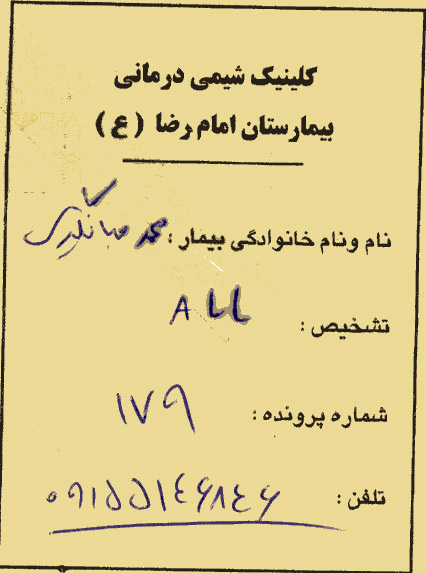 کلینیک شیمی درمانی
بیمارستان امام رضا (ع)
نام ونام خانوادگی بیمار : محمد
تشخیص : ALL
شماره پرونده : ۱۷۹
تلفن : ۰۹۱۵۵۱۴۶۸۴۶